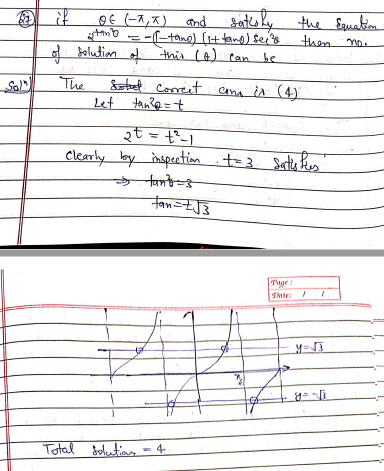 if θ∈ (-π, π) and satisfy the Equation
2^tan²θ = -(1-tanθ)(1+tanθ) sec²θ then no.
of solution of this (θ) can be
Solⁿ) The correct ans is (4)
Let tan²θ = t
2^t = t²-1
Clearly by inspection t=3 satisfies
⇒ tan²θ=3
tan=±√3
Page:
Date: / /
y=√3
π/2
y=-√3
Total solutions = 4